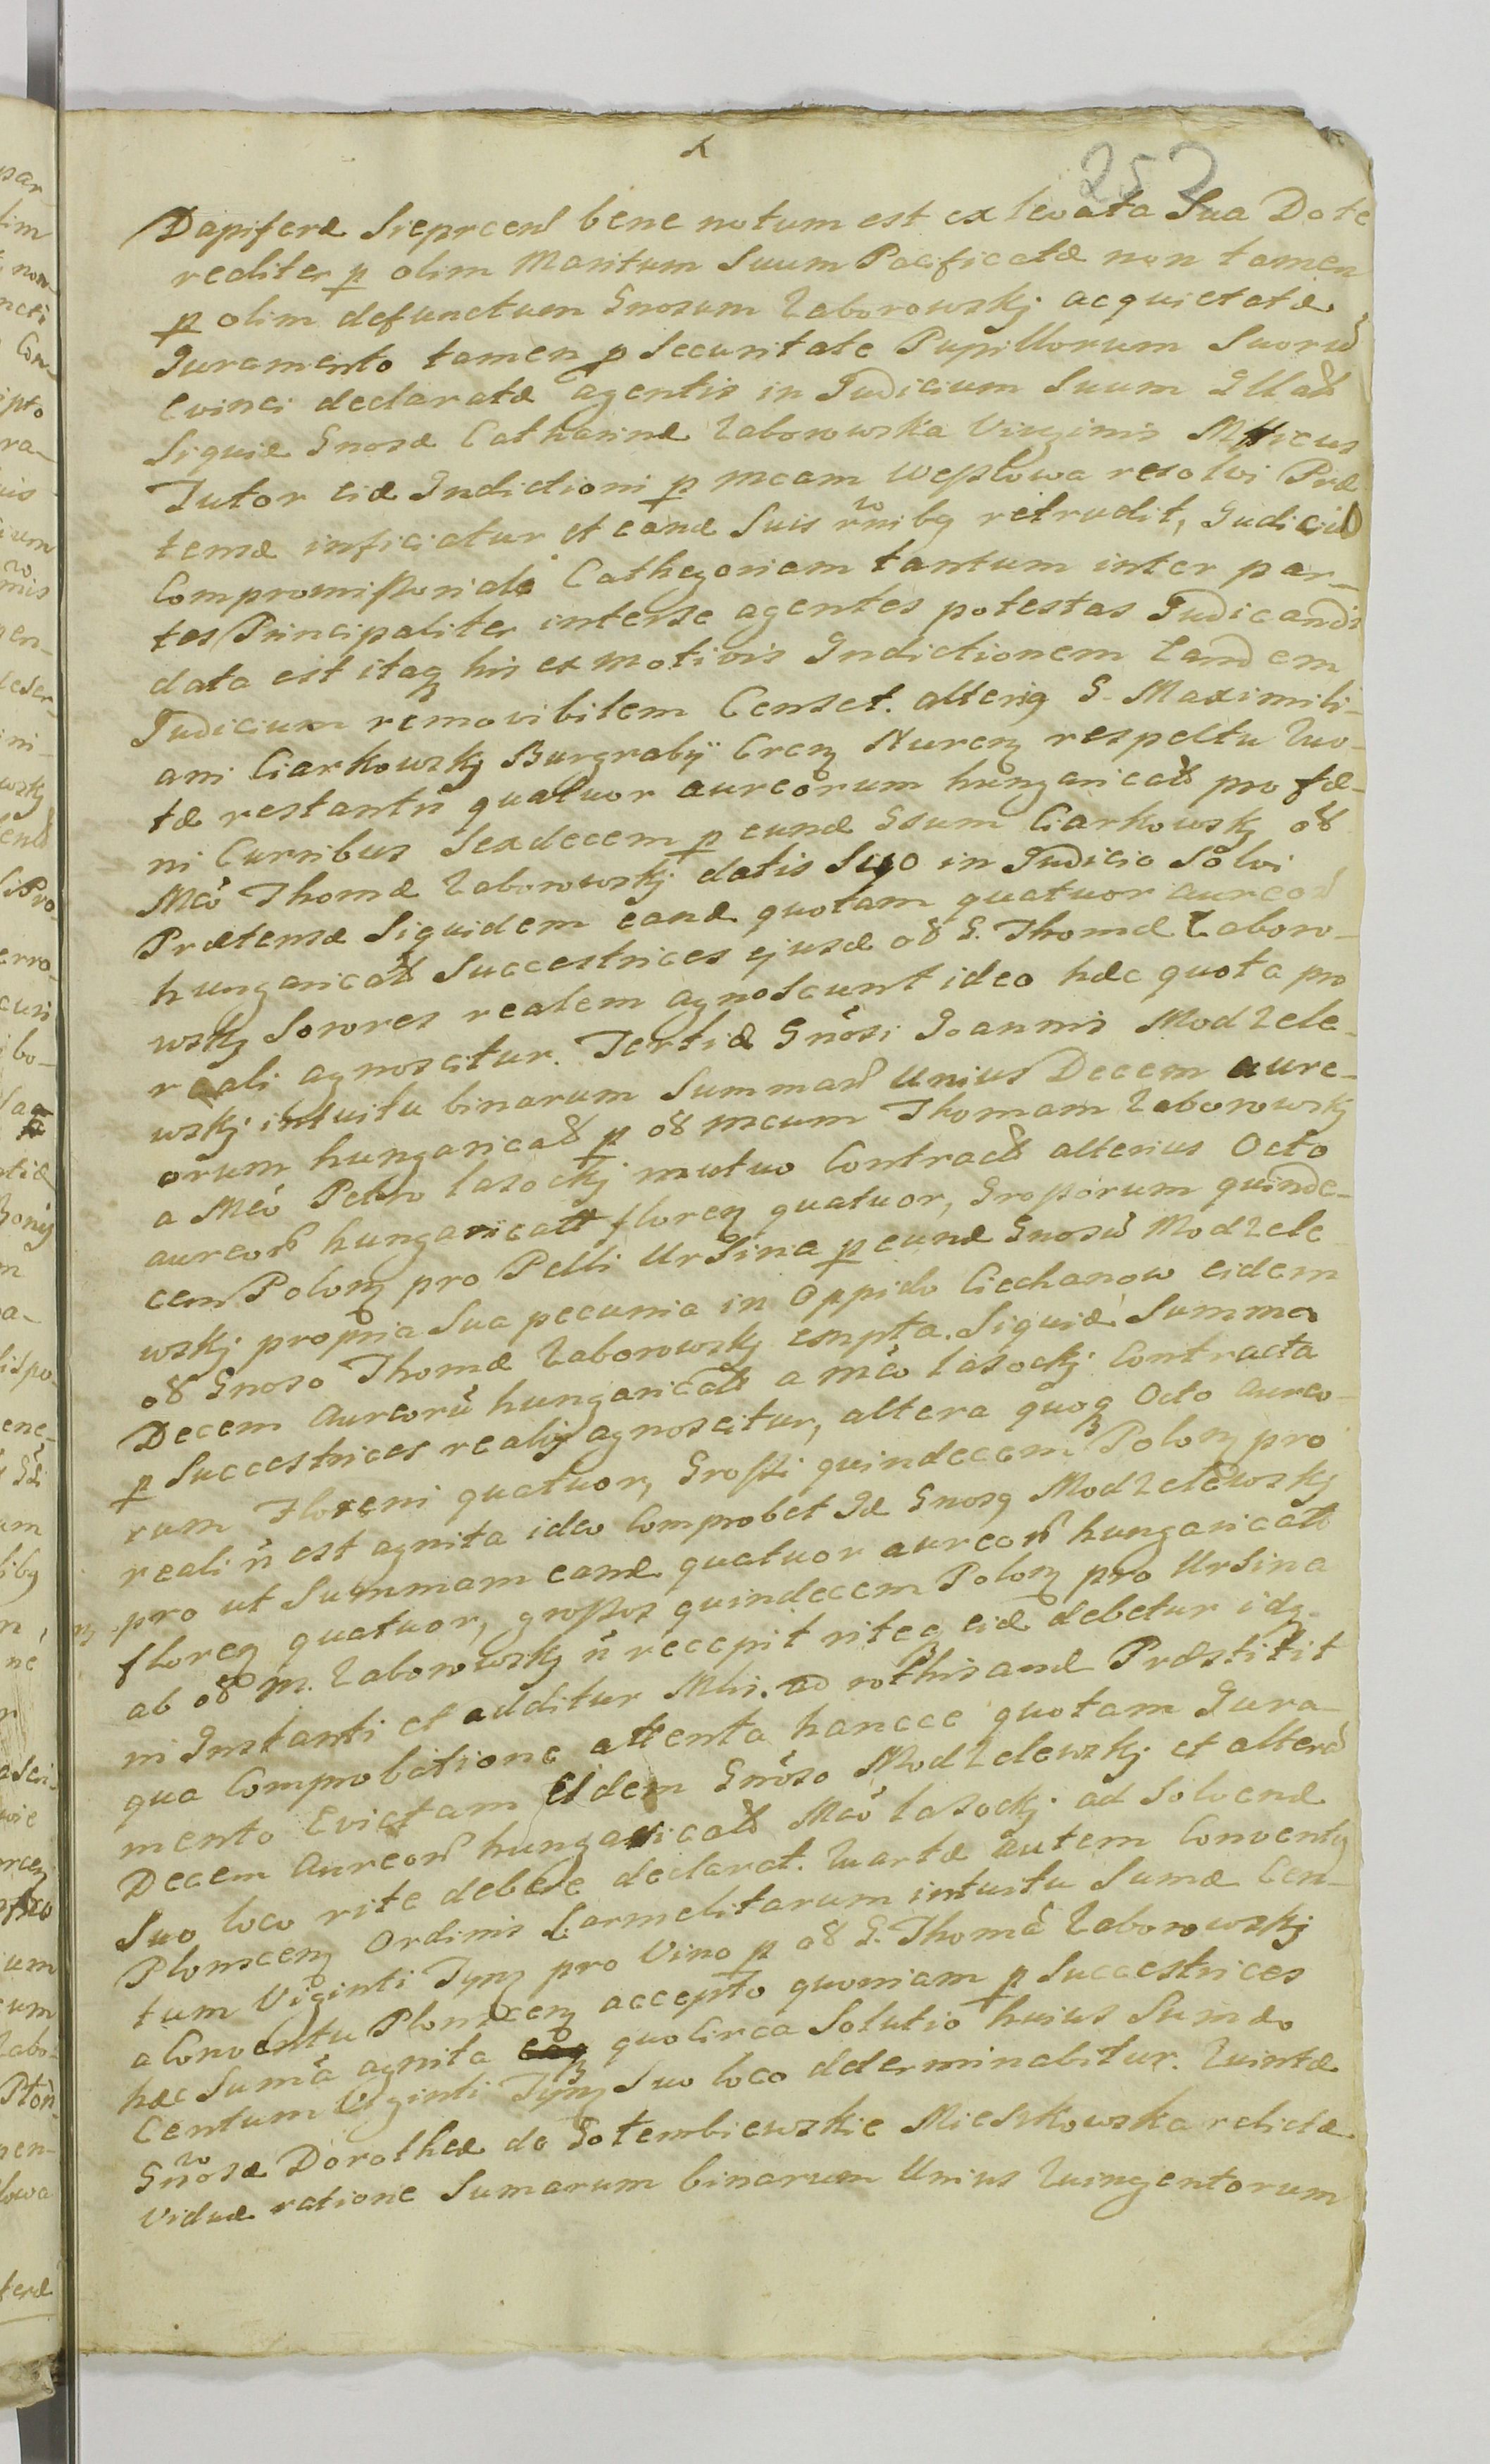 252
Dapiferæ Sieprcens bene notum est ex levata Sua Dote
realiter p olim Maritum Suum Pacificatæ non tamen
p olim defunctum Gnosum Zaborowskj acquietatæ
Juramento tamen p Securitate Pupillorum Suorũ
evinci declaratæ agentis in Judicium Suum
Siquid Gnosæ Catharinæ Zaborowska Virginis
Tutor eid Indictioni p mcam Wessłowa resolvi Præ
tensæ inficiatur et eand Suis rõnibq retrudit, Judicio
Compromissoriali Cathegoriam tantum inter par_
tes Principaliter interse agentes potestas Judicandi
data est itaq his ex motivis Indictionem tandem
Judicium removibilem Censet. alteriq G. Maximili_
ani Ciarkowskj Burgrabÿ Crcz Nurcz respectu Quo_
tæ restantis quatuor aureorum hungaricał pro fæ_
ni Curribus Sexdecem p eund Gsum Ciarkowskj
Mco Thomæ Zaborowskj datis Suo in Judicio Solvi
Prætensæ Siquidem eand quotam quatuor aureor
hungarical Succestrices ejusd G. Thomæ Zaboro_
wskj Sorores realem agnoscunt ideo hæc quota pro
reali agnoscitur. Tertid Gnosi Joannis Modzele_
wskj intuitu binarum Summar Unius Decem aure_
orum hungarical p mcum Thomam Zaborowskj
a Mco Petro Lasockj mutuo Contract alterius Octo
aureor hungarical florenz quatuor, Grossorum quinde_
cem Polonz pro Pelli Ursina p eund Gnosũ Modzele
wskj propria Sua pecunia in Oppido Ciechanow eidem
Gnoso Thomæ Zaborowskj empta. Siquid Summa
Decem Aureorũ hungarical a mco Lasockj Contracta
p Succestrices realis agnoscitur, altera quoq Octo aureo_
rum Floreni quatuor, Grossi quindecem Polonz pro
reali ñ est agnita ideo Comprobet Id Gnosq Modzelewskj
pro ut Summam eand quatuor aureor hungarical
florenz quatuor, grossos quindecem Polonz pro Ursina
ab M. Zaborowskj ñ recepit riteq eid debetur idq
in Instanti et additur Mlis. ad rothisand Præstitit
qua Comprobatione attenta hancce quotam Jura_
mento Evictam Eidem Gnoso Modzelewskj et alterã
Decem Aureor hungarical Mco Lasockj ad Solvend
Suo loco rite debere declarat. Quartæ autem Conventq
Plonscenz Ordinis Carmelitarum intuitu Sumæ Cen_
tum Viginti Tynz pro Vino p G. Thomã Zaborowskj
a Conventu Plonscenz accepto quoniam p Succestrices
hæc Sumã agnita quocirca Solutio huius Sumæ
Centum Viginti Tynz Suo loco determinabitur. Quintæ
Gnosæ Dorotheæ de Gotembiewskie Mieszkowska relictæ
Viduæ ratione Sumarum binarum Unius Quingentorum